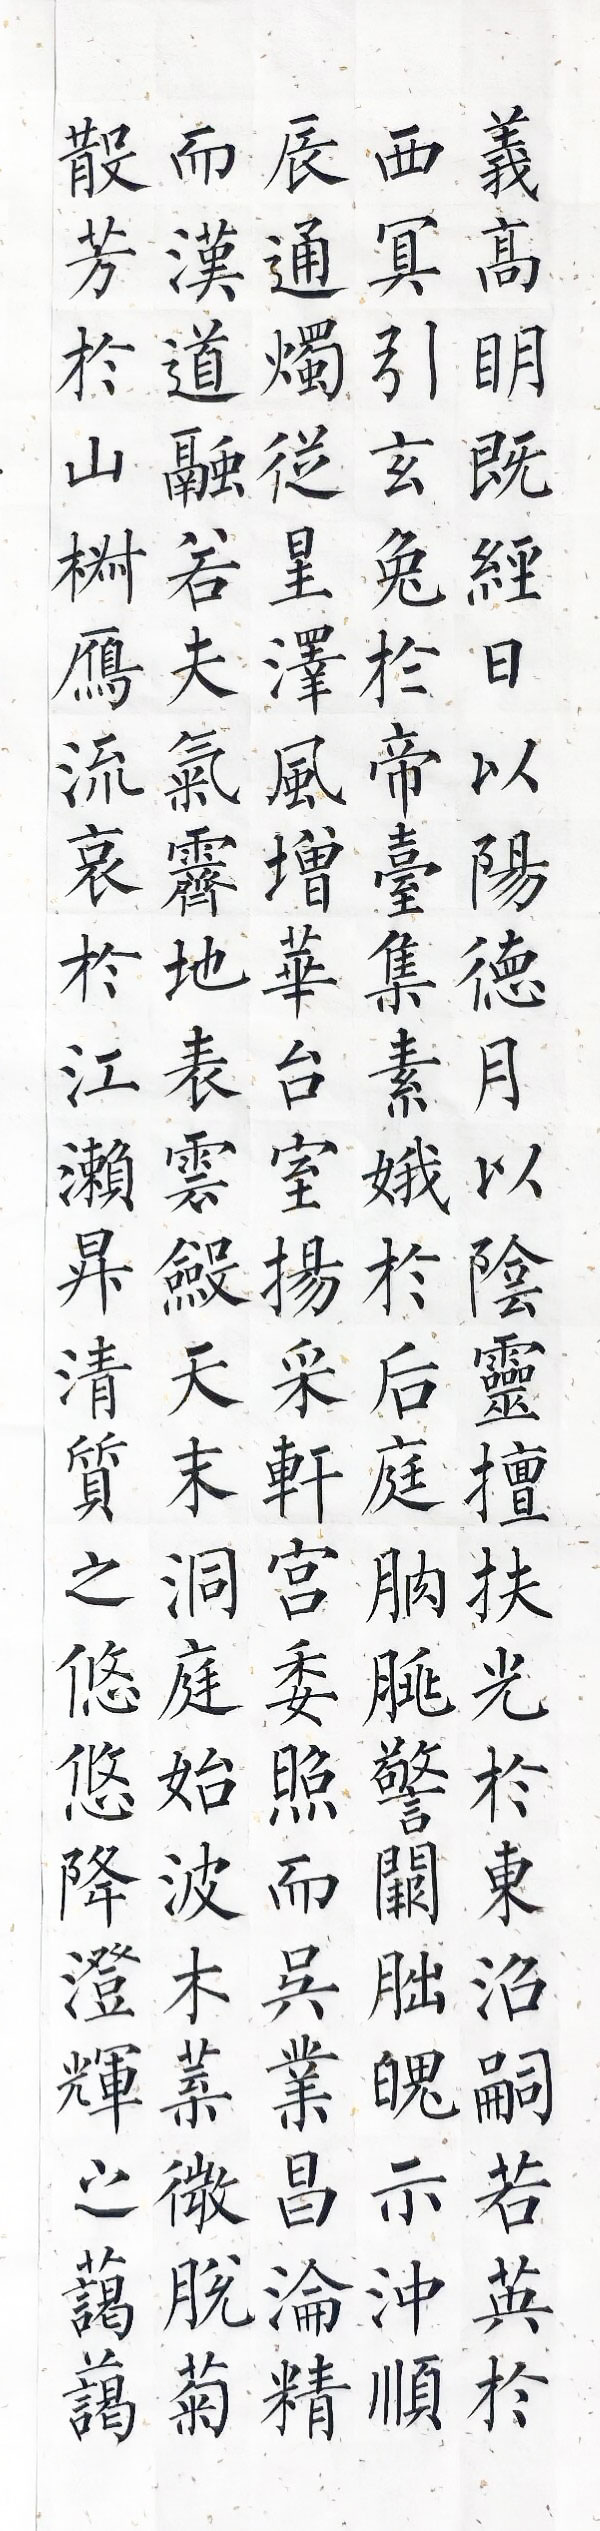 義高明既經日以陽德月以陰靈擅扶光於東沼嗣若英於
西冥引玄兔於帝臺集素娥於后庭朒朓警闕朏魄示沖順
辰通燭從星澤風增華台室揚采軒宮委照而吳業昌淪精
而漢道融若夫氣霽地表雲斂天末洞庭始波木葉微脫菊
散芳於山椒鴈流哀於江瀨昇清質之悠悠降澄輝之藹藹